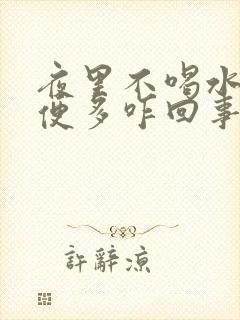 夜里不喝水
便多咋回事
許辭涼